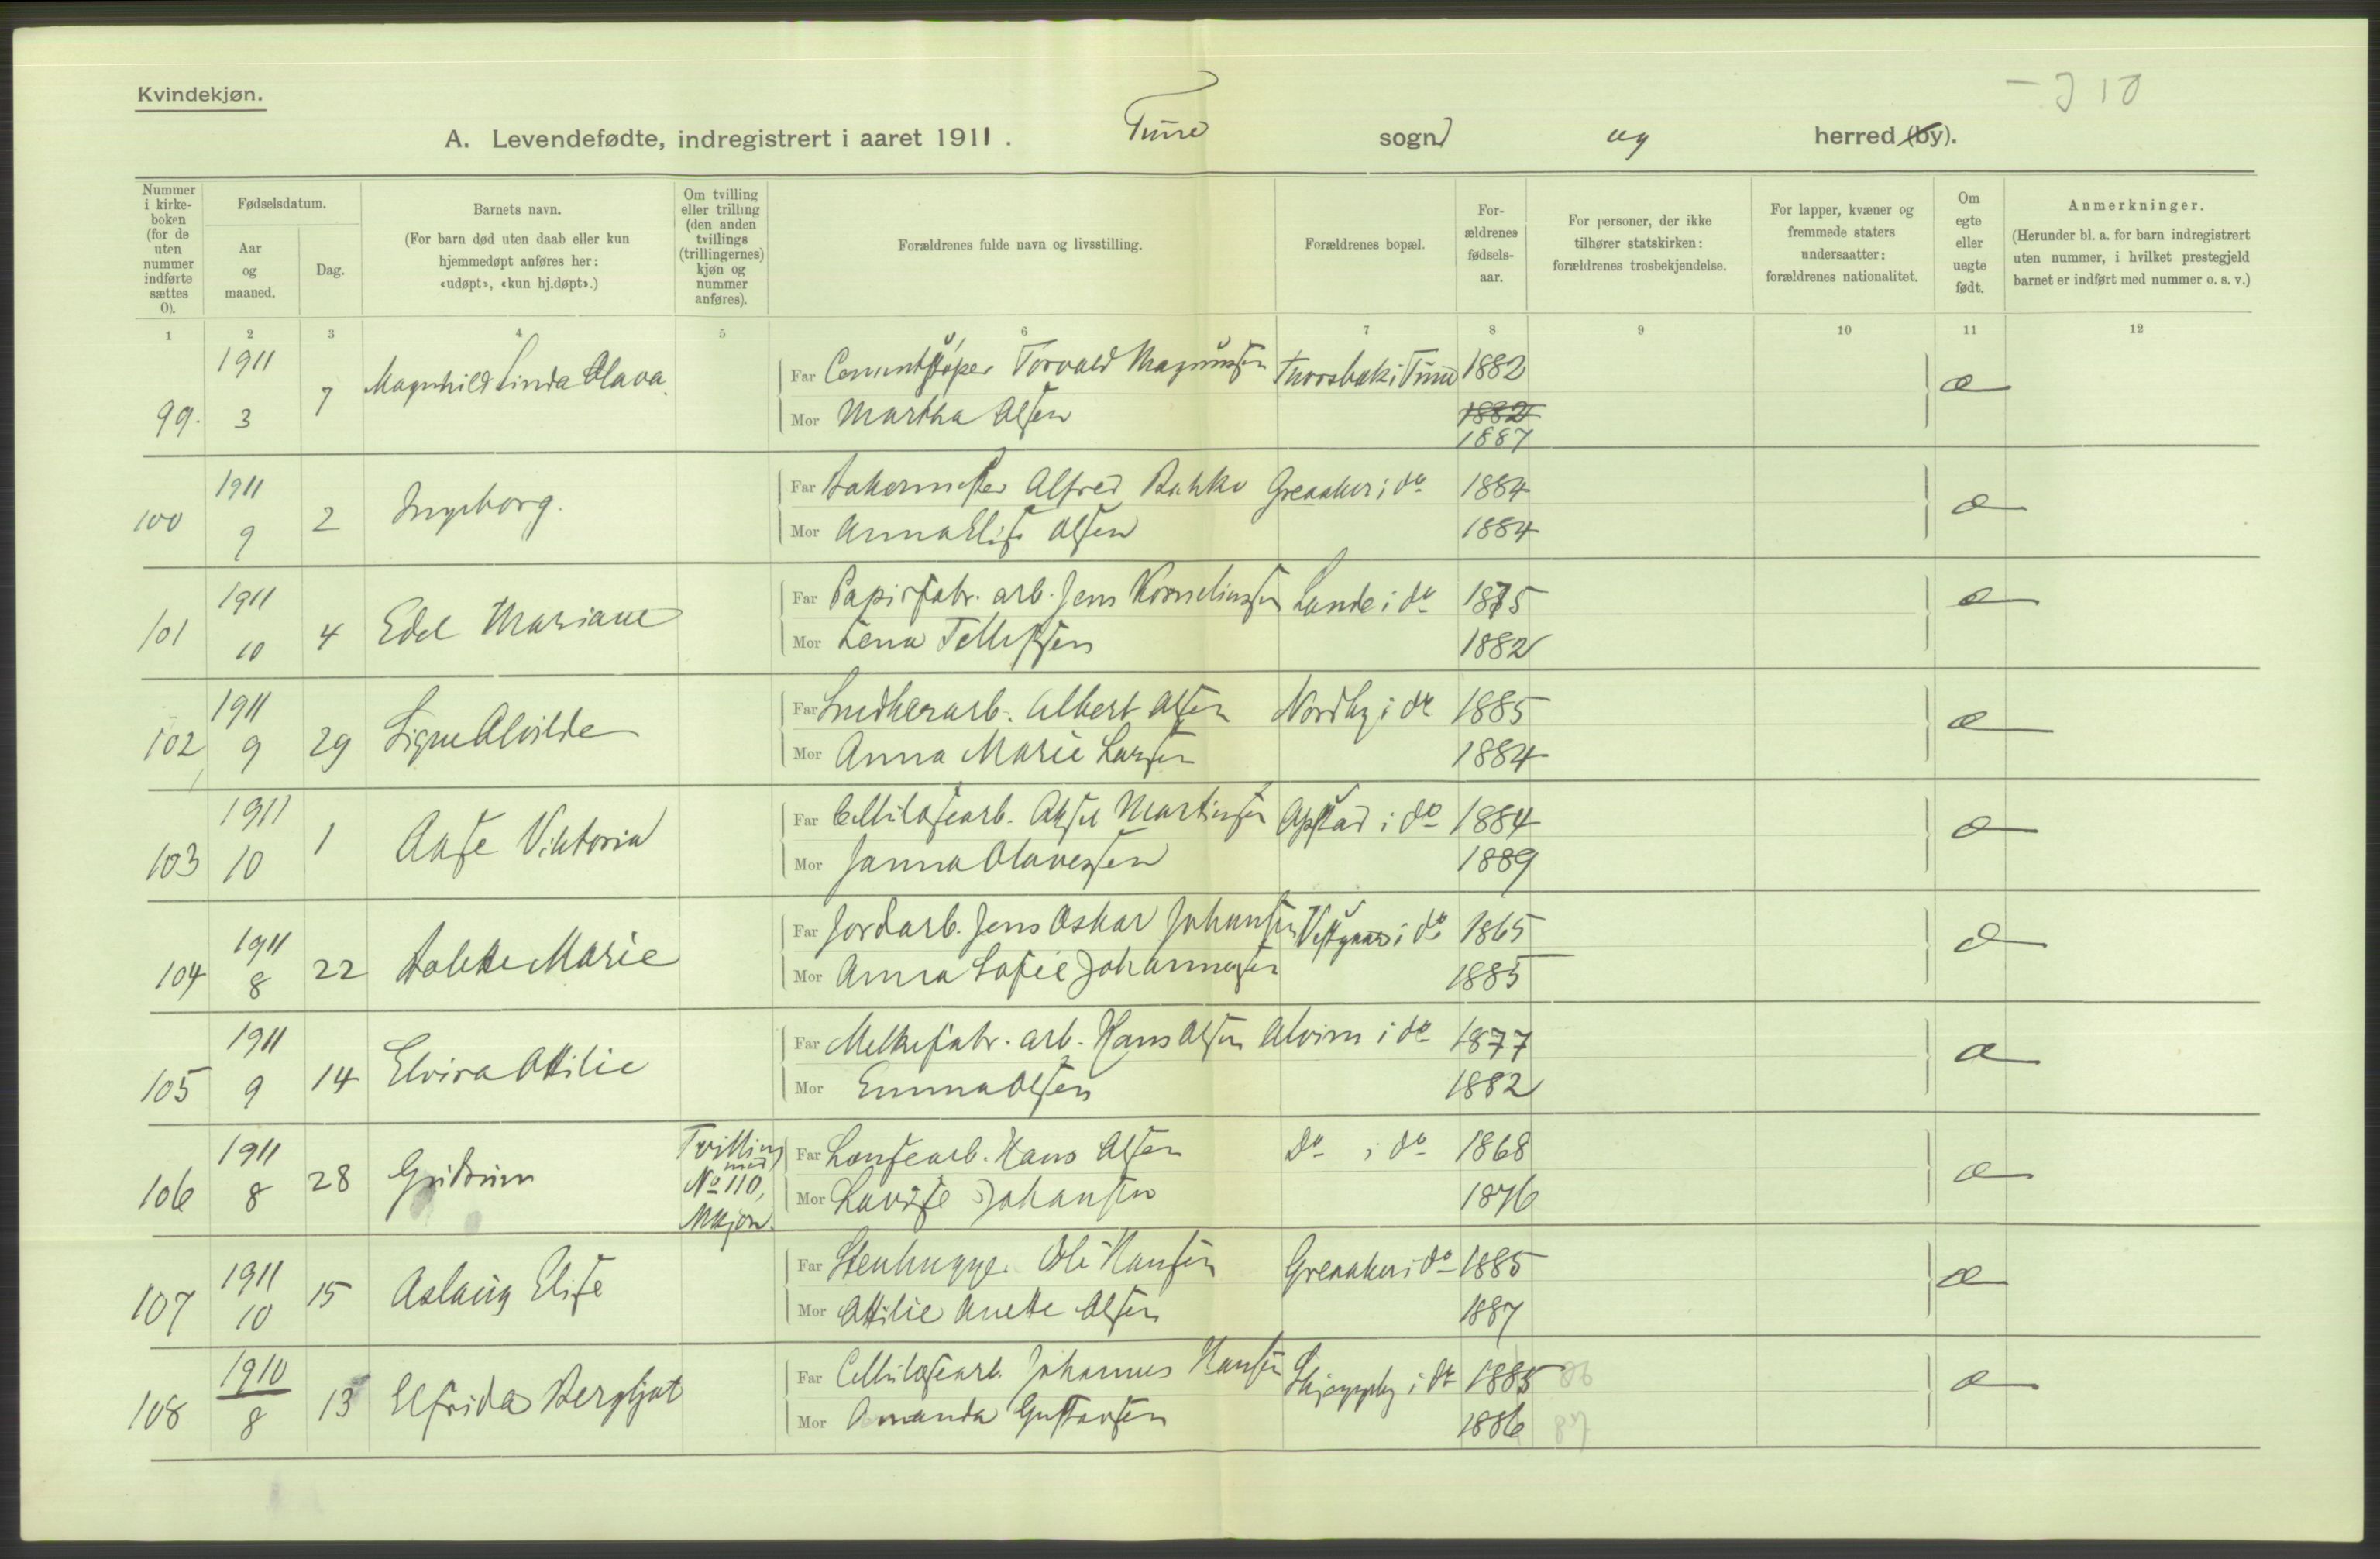 Kvindekjøn.
A. Levendefødte, indregistrert i aaret 1911. Tune sogn og herred (by).
Nummer i kirkeboken (for de uten nummer indførte sættes 0).
Fødselsdatum.
Aar og maaned.
Dag.
Barnets navn.
(For barn død uten daab eller kun hjemmedøpt anføres her: «udøpt», «kun hj.døpt».)
Om tvilling eller trilling (den anden tvillings (trillingernes) kjøn og nummer anføres).
Forældrenes fulde navn og livsstilling.
Forældrenes bopæl.
Forældrenes fødselsaar.
For personer, der ikke tilhører statskirken: forældrenes trosbekjendelse.
For lapper, kvæner og fremmede staters undersaatter: forældrenes nationalitet.
Om egte eller uegte født.
Anmerkninger.
(Herunder bl. a. for barn indregistrert uten nummer, i hvilket prestegjeld barnet er indført med nummer o. s. v.)
1 2 3 4 5 6 7 8 9 10 11 12
99. 1911 3 7 Magnhild Linda Olava. Far Cementstøper Torvald Magnussen i Tune 1882 æ
Mor Martha Olsen 1882 1887
100 1911 9 2 Ingeborg. Far Alfred Bakke Greaaker i do 1884 æ
Mor Anna Elise Olsen 1884
101 1911 10 4 Edel Mariane Far Papirfabr. arb. Jens Korneliussen Lande i do 1875 æ
Mor Lena Tellefsen 1882
102 1911 9 29 Signe Alvilde Far Albert Olsen Nordby i do 1885 æ
Mor Anna Marie Larsen 1884
103 1911 10 1 Aase Viktoria Far Cellulosearb. Aksel Martinsen Opstad i do 1884 æ
Mor Janna Olavesen 1889
104 1911 8 22 Marie Far Jordarb. Jens Oskar Johansen Vestgaard i do 1865 æ
Mor Anna Sofie Johannesen 1885
105 1911 9 14 Elvira Otilie Far Melkefabr. arb. Hans Olsen Alvim i do 1877 æ
Mor Emma Olsen 1882
106 1911 8 28 Gudrun Tvilling med No 110, Mkjøn. Far Lensearb. Hans Olsen Do i do 1868 æ
Mor Lovise Johansen 1876
107 1911 10 15 Aslaug Elise Far Stenhugger Ole Hansen Greaaker i do 1885 æ
Mor Otilie Anette Olsen 1887
108 1910 8 13 Elfrida Bergljot Far Cellulosearb. Johannes Hansen i do 1885 86 æ
Mor Amanda Gustavsen 1886